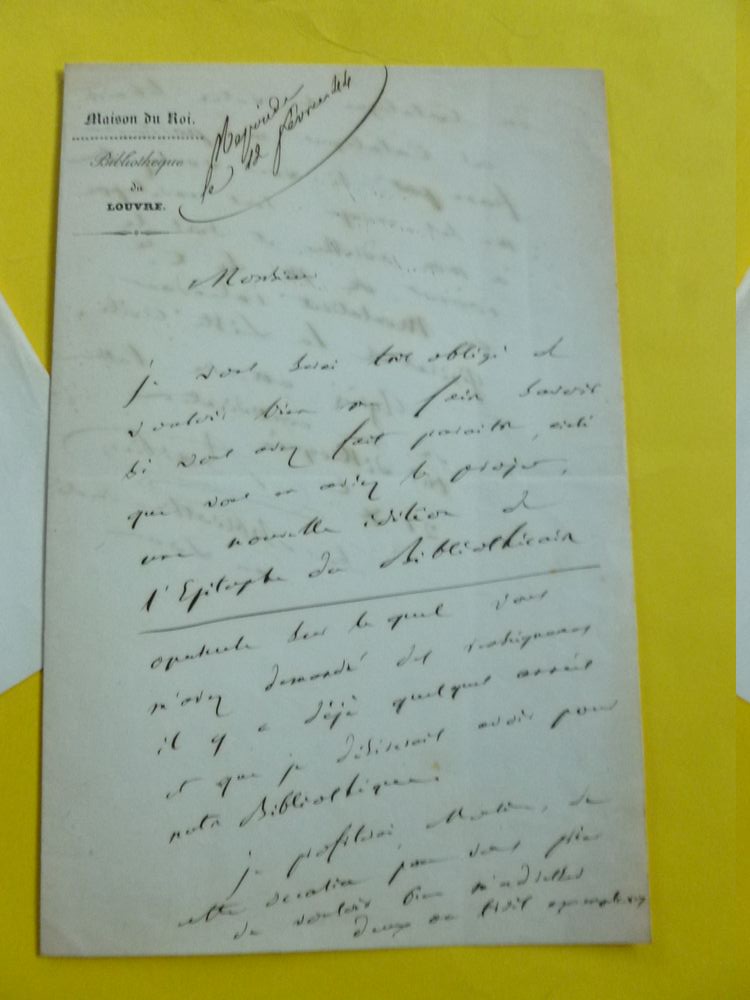 Maison du Roi.
Bibliothèque
du
LOUVRE.
Repondu
le 12 février 44
Monsieur
je vous serai très obligé de
vouloir bien me faire savoir
si vous avez fait paraitre, ainsi
que vous en aviez le projet,
une nouvelle édition de
l'Epitaphe du Bibliothécaire
opuscule sur lequel vous
m'avez demandé des
il y a déjà quelques années
et que je désirerais avoir pour
notre Bibliothèque.
je profiterai, Monsieur, de
cette occasion pour vous prier
de vouloir bien m'adresser
deux ou trois exemplaires